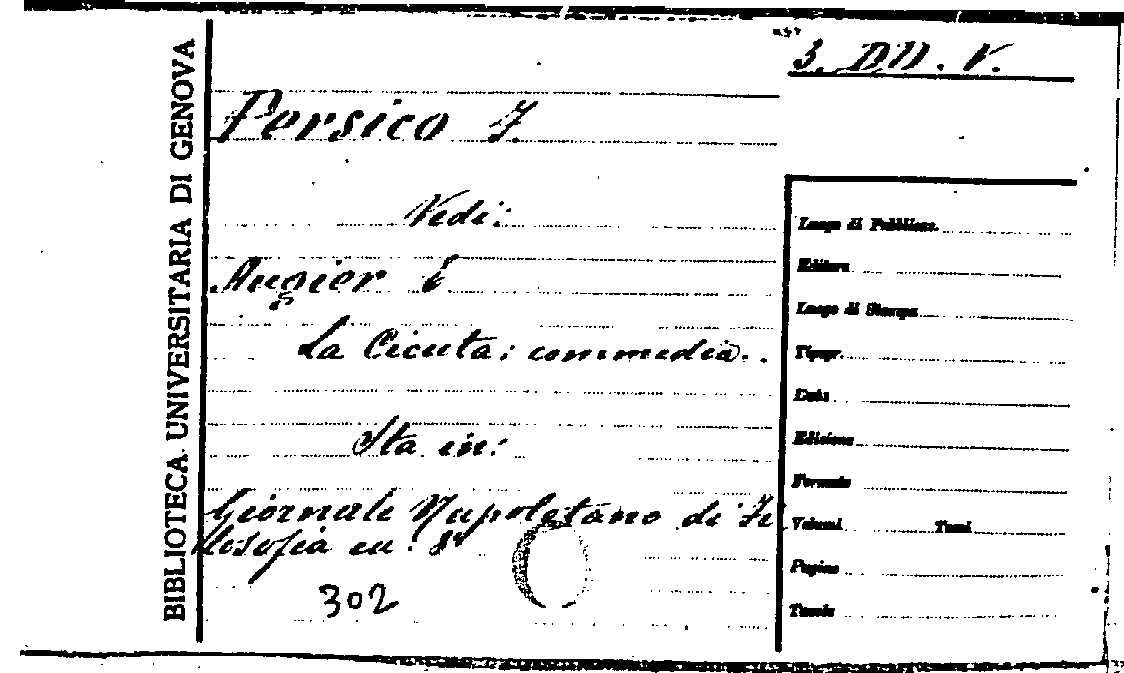 3. DD. V.
Persico F.
Vedi:
Augier E
La Cicuta: commedia.
Sta in:
Giornale Napoletano di Fi
losofia
302
BIBLIOTECA UNIVERSITARIA DI GENOVA
Luogo di Pubblicaz.
Editore
Luogo di Stampa
Tipogr.
Data
Edizione
Formato
Volumi Tomi
Pagine
Tavole